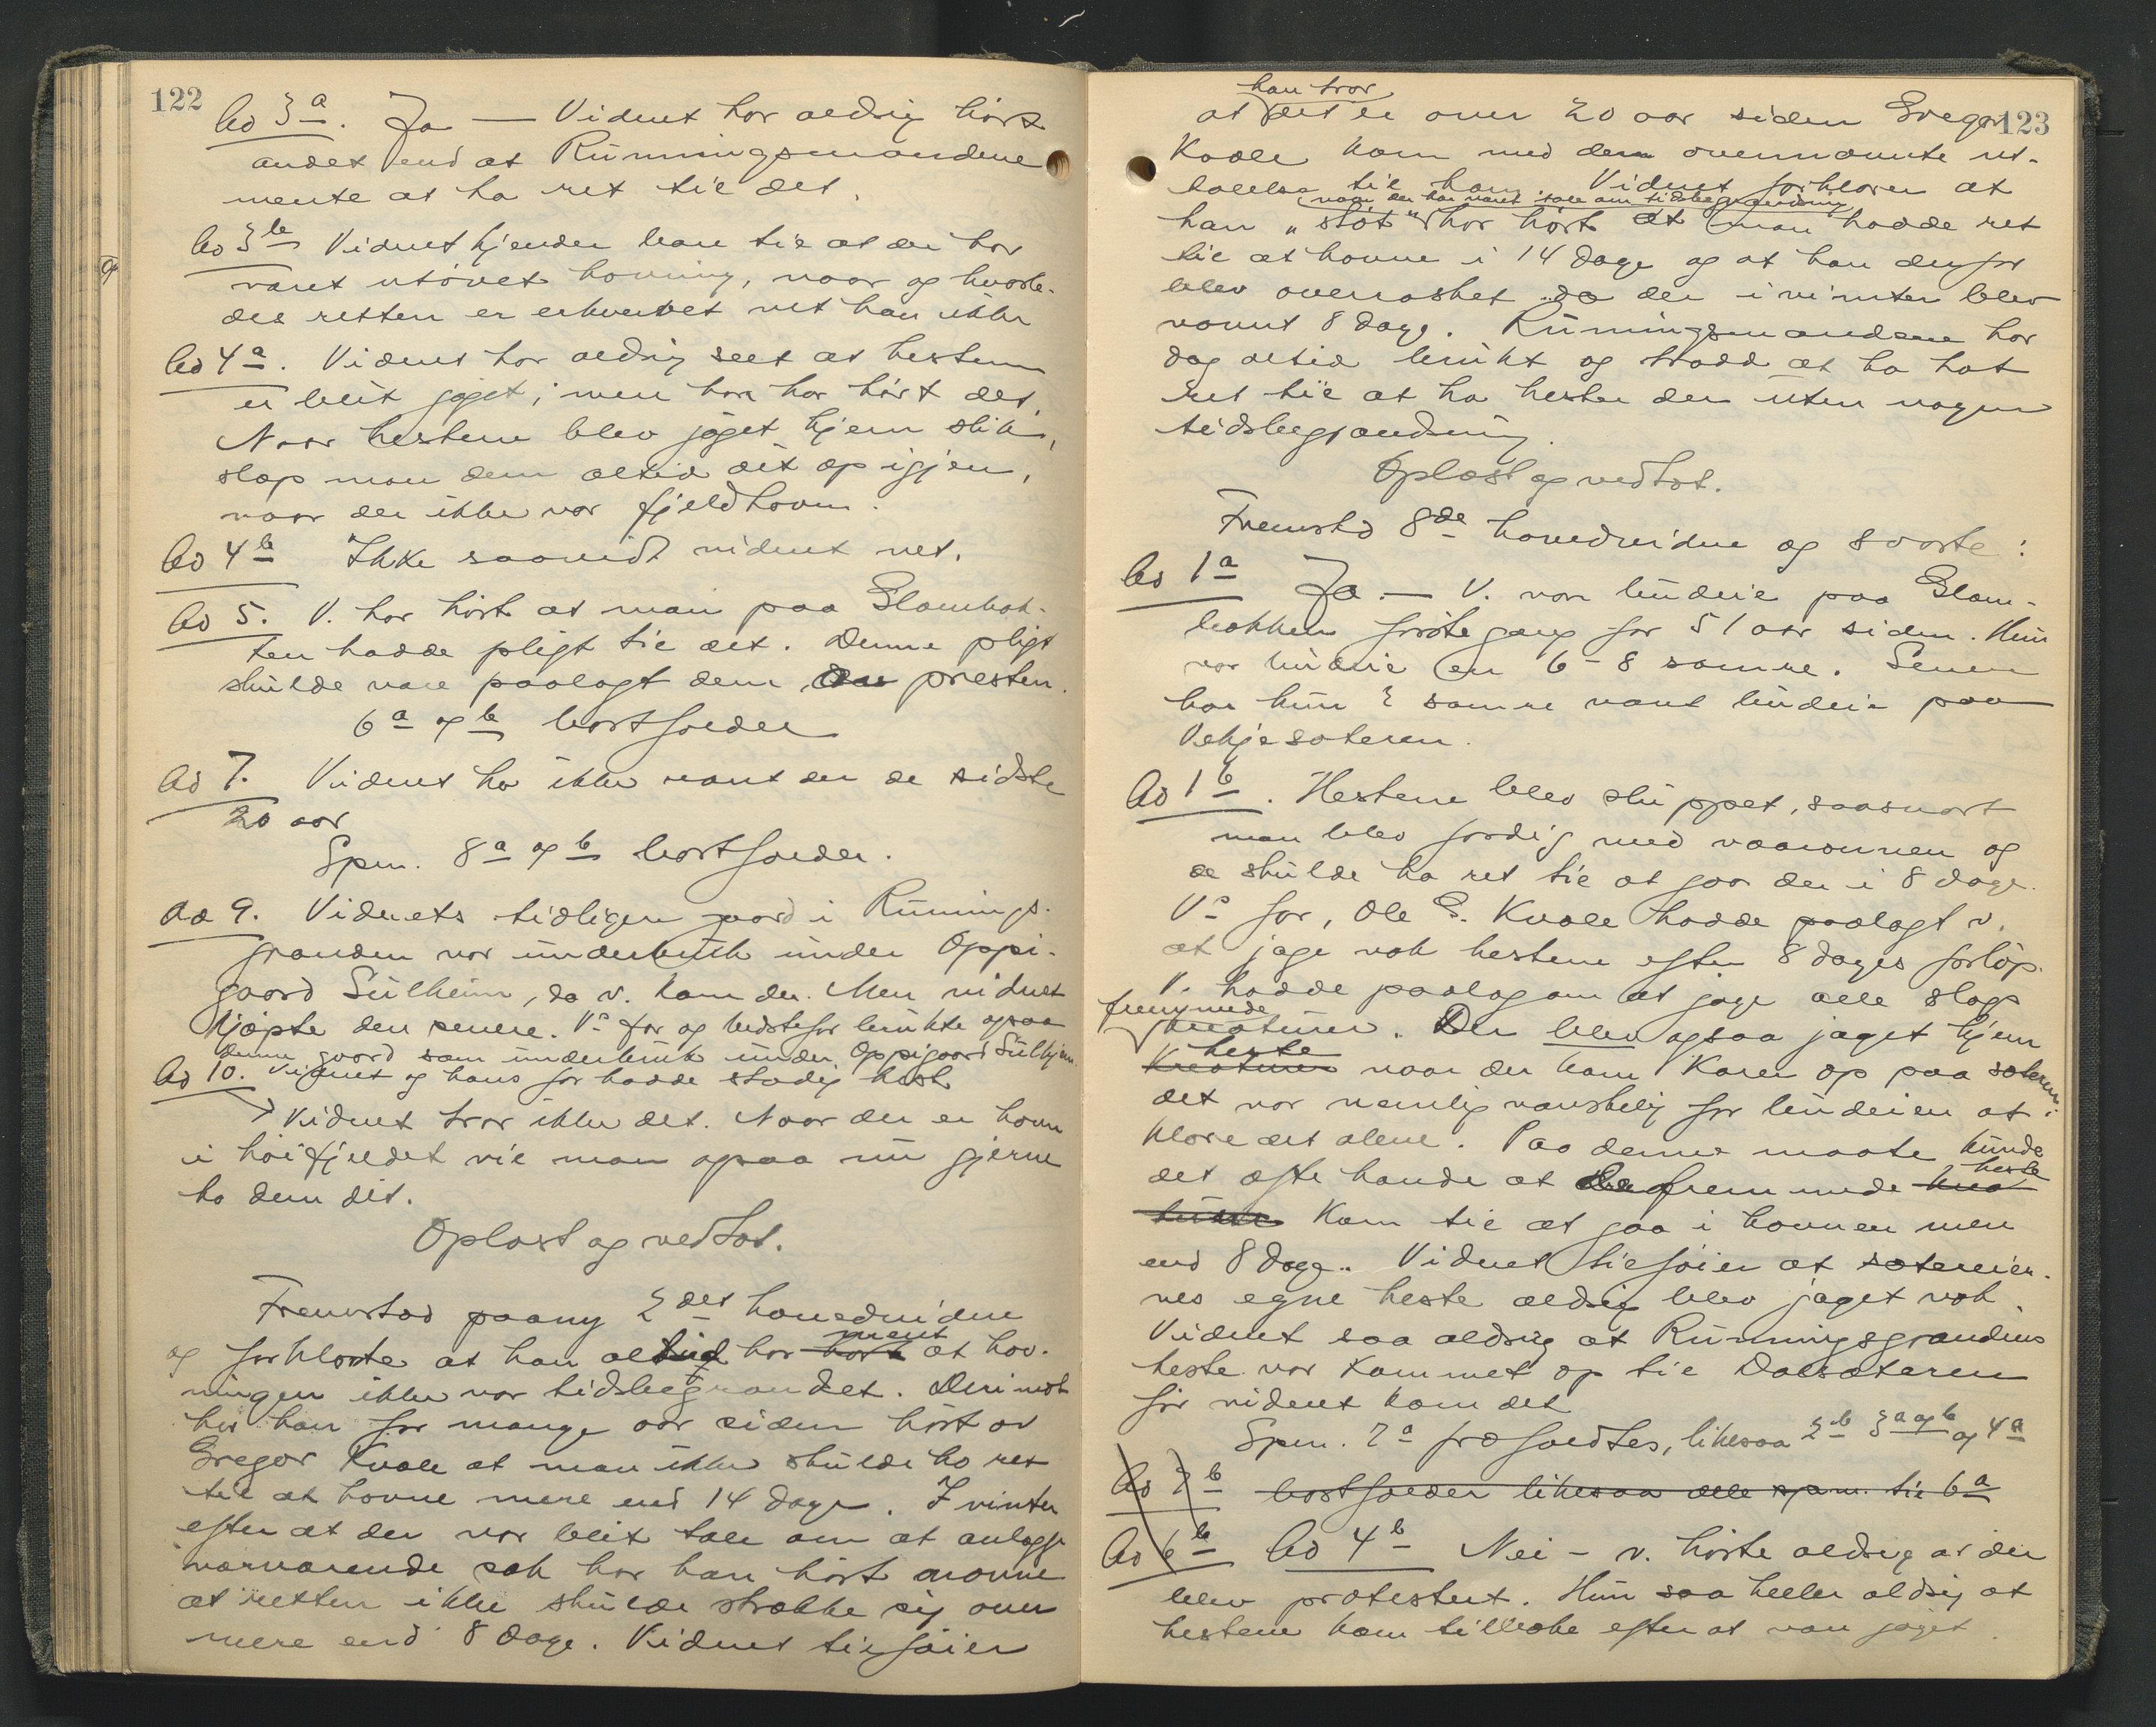 122
Ad 3a. Ja — Vidnet har aldrig hørt
andet end at Rünningsmændene
mente at ha ret til det.
Ad 3b Vidnet kjender kun til at der har
været utøvet havning, naar og hvorle-
des retten er erhvervet vet han ikke
Ad 4a. Vidnet har aldrig seet at hestene
er blit jaget; men han har hørt det.
Naar hestene blev jaget hjem slik,
slap man dem altid dit op igjen,
naar der ikke var fjeldhavn.
Ad 4b Ikke saavidt vidnet vet.
Ad 5. V. har hørt at man paa Glambæk-
ken hadde pligt til det. Denne pligt
skulde være paalagt dem av presten.
6a og b bortfalder
Ad 7. Vidnet har ikke været der de sidste
20 aar
Spm. 8a og b bortfalder.
Ad 9. Vidnets tidligere gaard i Rünnings-
granden var ünderbrük ünder Oppi-
gaard Sülheim, da v. kom der. Men vidnet
kjøpte den senere. Vs far og bedstefar brükte ogsaa
denne gaard som ünderbrük ünder Oppigaard Sülhjem.
Ad 10. Vidnet og hans far hadde stadig hest
Vidnet tror ikke det. Naar der er havn
i høifjeldet vil man ogsaa nü gjerne
ha dem dit.
Oplæst og vedtat.
Fremstod paany 2det hovedvidne
og forklarte at han altid har hørt ment at hav-
ningen ikke var tidsbegrændset. Derimot
har han for mange aar siden hørt av
Gregor Kvale at man ikke skulde ha ret
til at havne mere end 14 dage. I vinter
efter at der var blit tale om at anlægge
nærværende sak har han hørt nævne
at retten ikke skulde strække sig over
mere end 8 dage. Vidnet tilføier
123
han tror
at det er over 20 aar siden Gregor
Kvale kom med den ovennævnte ut-
talelse til ham. Vidnet forklarer at
naar der har været tale om tidsbegrændsning
han „støt" har hørt at man hadde ret
til at havne i 14 dage og at han derfor
blev overrasket da der i vinter blev
nævnt 8 dage. Rünningsmændene har
dog altid brükt og trodd at ha hat
ret til at ha hester der uten nogen
tidsbegrændsning.
Oplæst og vedtat.
Fremstod 8de hovedvidne og svarte:
Ad 1a Ja. — V. var büdeie paa Glam-
bækken første gang for 51 aar siden. Hün
var büdeie en 6-8 somre. Senere
har hün 2 somre været büdeie paa
Vekjesæteren.
Ad 1b. Hestene blev slüppet, saasnart
man blev færdig med vaaronnen og
de skülde ha ret til at gaa der i 8 dage.
Vs far, Ole G. Kvale hadde paalagt v.
at jage væk hestene efter 8 dages forløp.
V. hadde paalæg om at jage alle slags
fremmede
kreatürer. Der blev ogsaa jaget hjem
heste
Kreatürer naar der kom Karer op paa sæteren;
det var nemlig vanskelig for büdeien at
klare det alene. Paa denne maate künde
heste
det ofte hænde at de fremmede krea-
türer kom til at gaa i havnen mere
end 8 dage. Vidnet tilføier at sætereier-
nes egne heste aldrig blev jaget væk.
Vidnet saa aldrig at Rünningsgrandens
heste var kommet op til Dalsæteren
før vidnet kom dit
Spm. 2a frafaldtes, likesaa 2b 3a og b og 4a
Ad 2b bortfalder likesaa alle spm. til 6a
Ad 6b Ad 4b Nei - v. hørte aldrig at der
blev protestert. Hün saa heller aldrig at
hestene kom tilbake efter at være jaget.